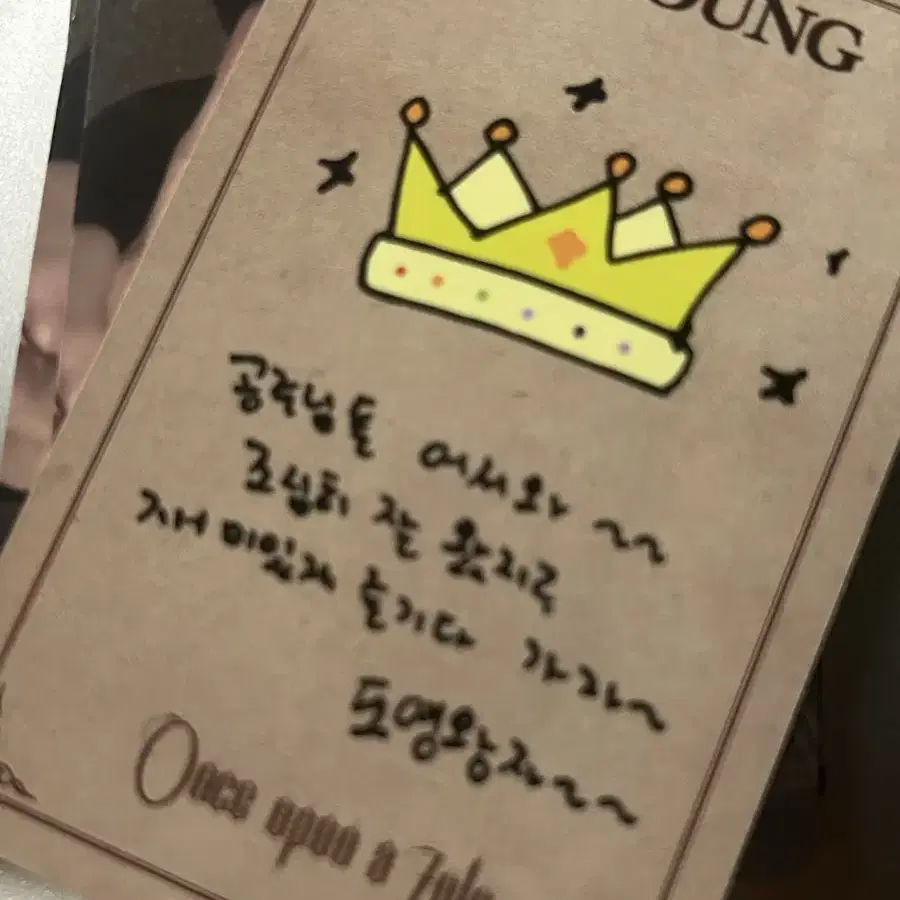 OUNG
공주님들 어서와~~
조심히 잘 왔지?
재미있게 즐기다 가라~
도영왕자~~
Once upon a